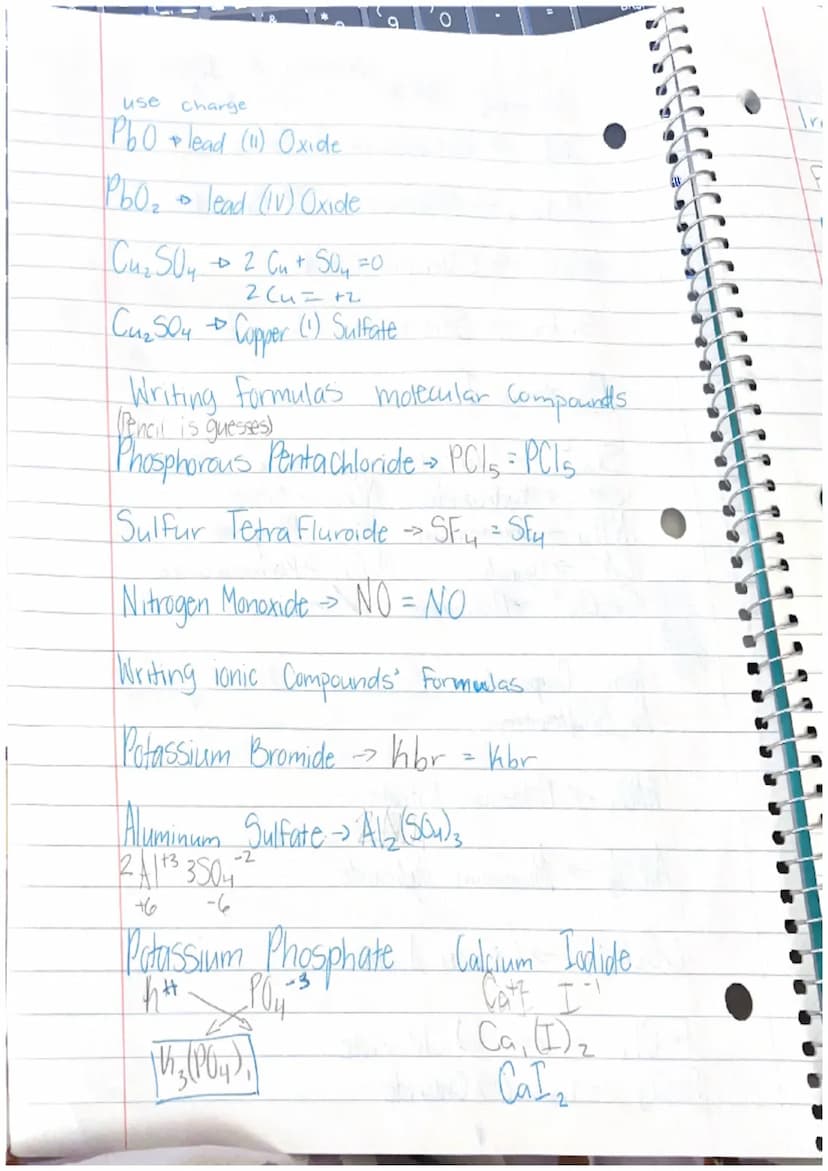 use charge
PbO → lead (II) Oxide
PbO₂ → lead (IV) Oxide
Cu₂SO₄ → 2 Cu + SO₄ = 0
2 Cu = +2
Cu₂SO₄ → Copper (I) Sulfate
Writing formulas molecular Compounds
(Pencil is guesses)
Phosphorous Pentachloride → PCl₅ = PCl₅
Sulfur Tetra Fluroide → SF₄ = SF₄
Nitrogen Monoxide → NO = NO
Writing ionic Compounds' Formulas
Potassium Bromide → Kbr = Kbr
Aluminum Sulfate → Al₂(SO₄)₃
2Al⁺³ 3SO₄⁻²
+6 -6
Potassium Phosphate Calcium Iodide
K⁺¹ PO₄⁻³ Ca⁺² I⁻¹
K₃(PO₄)₁ Ca₁(I)₂
CaI₂